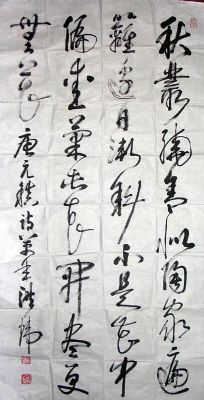 秋叢繞舍似陶家遍
籬邊日漸斜不是花中
偏愛菊此花開盡更
無花 唐元稹詩